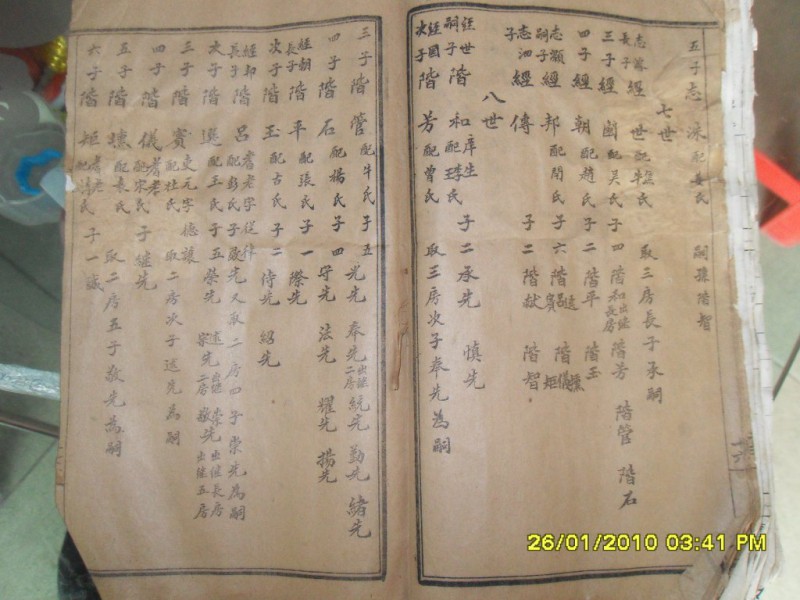 五子志 配姜氏 嗣孫階智
七世
長子經世 配 氏 取三房長子承嗣
三子經 配吳氏 子四 階和出繼長房 階芳 階管 階石
四子經朝 配趙氏 子二 階平 階玉
嗣子經邦 配閆氏 子六 階呂 階選 階賓 階儀 階 階矩
志泗子經傳 子二 階猷 階智
八世
經世嗣子階和 庠生 配李氏王氏 子二 承先 慎先
經國次子階芳 配曾氏 取三房次子奉先為嗣
三子階管 配牛氏 子五 光先 奉先出繼二房 統先 勤先 緒先
四子階石 配楊氏 子四 守先 法先 耀先 揚先
經朝長子階平 配張氏 子一 際先
次子階玉 配古氏 子二 侍先 紹先
經邦長子階呂 耆老字從律 配彭氏 子 先 又取二房四子崇先為嗣
次子階選 配王氏 子五 榮先 述先出繼 宗先 崇先出繼長房 敬先出繼五房
三子階賓 文元字德讓 配杜氏 取二房次子述先為嗣
四子階儀 耆老 配宋氏 子繼先
五子階 配袁氏 取二房五子敬先為嗣
六子階矩 耆老 配馮氏 子一誠
26/01/2010 03:41 PM